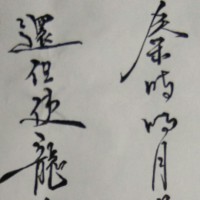 秦時明月
還但使龍